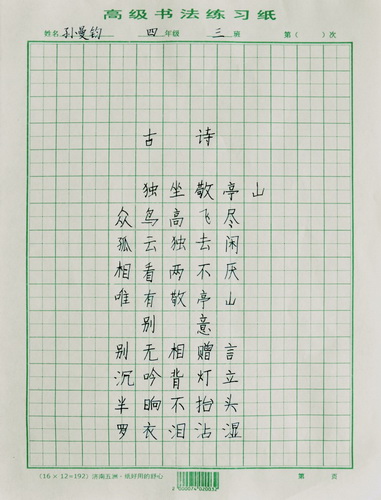 高级书法练习纸
姓名 孙曼钧 四 年级 三 班 第( )次
古 诗
独坐敬亭山
众鸟高飞尽
孤云独去闲
相看两不厌
唯有敬亭山
别 意
别无相赠言
沉吟背灯立
半晌不抬头
罗衣泪沾湿
(16×12=192) 济南五洲·纸好用的舒心
第 页